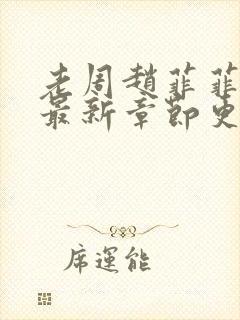 老周趙菲菲
最新章節更
席運能